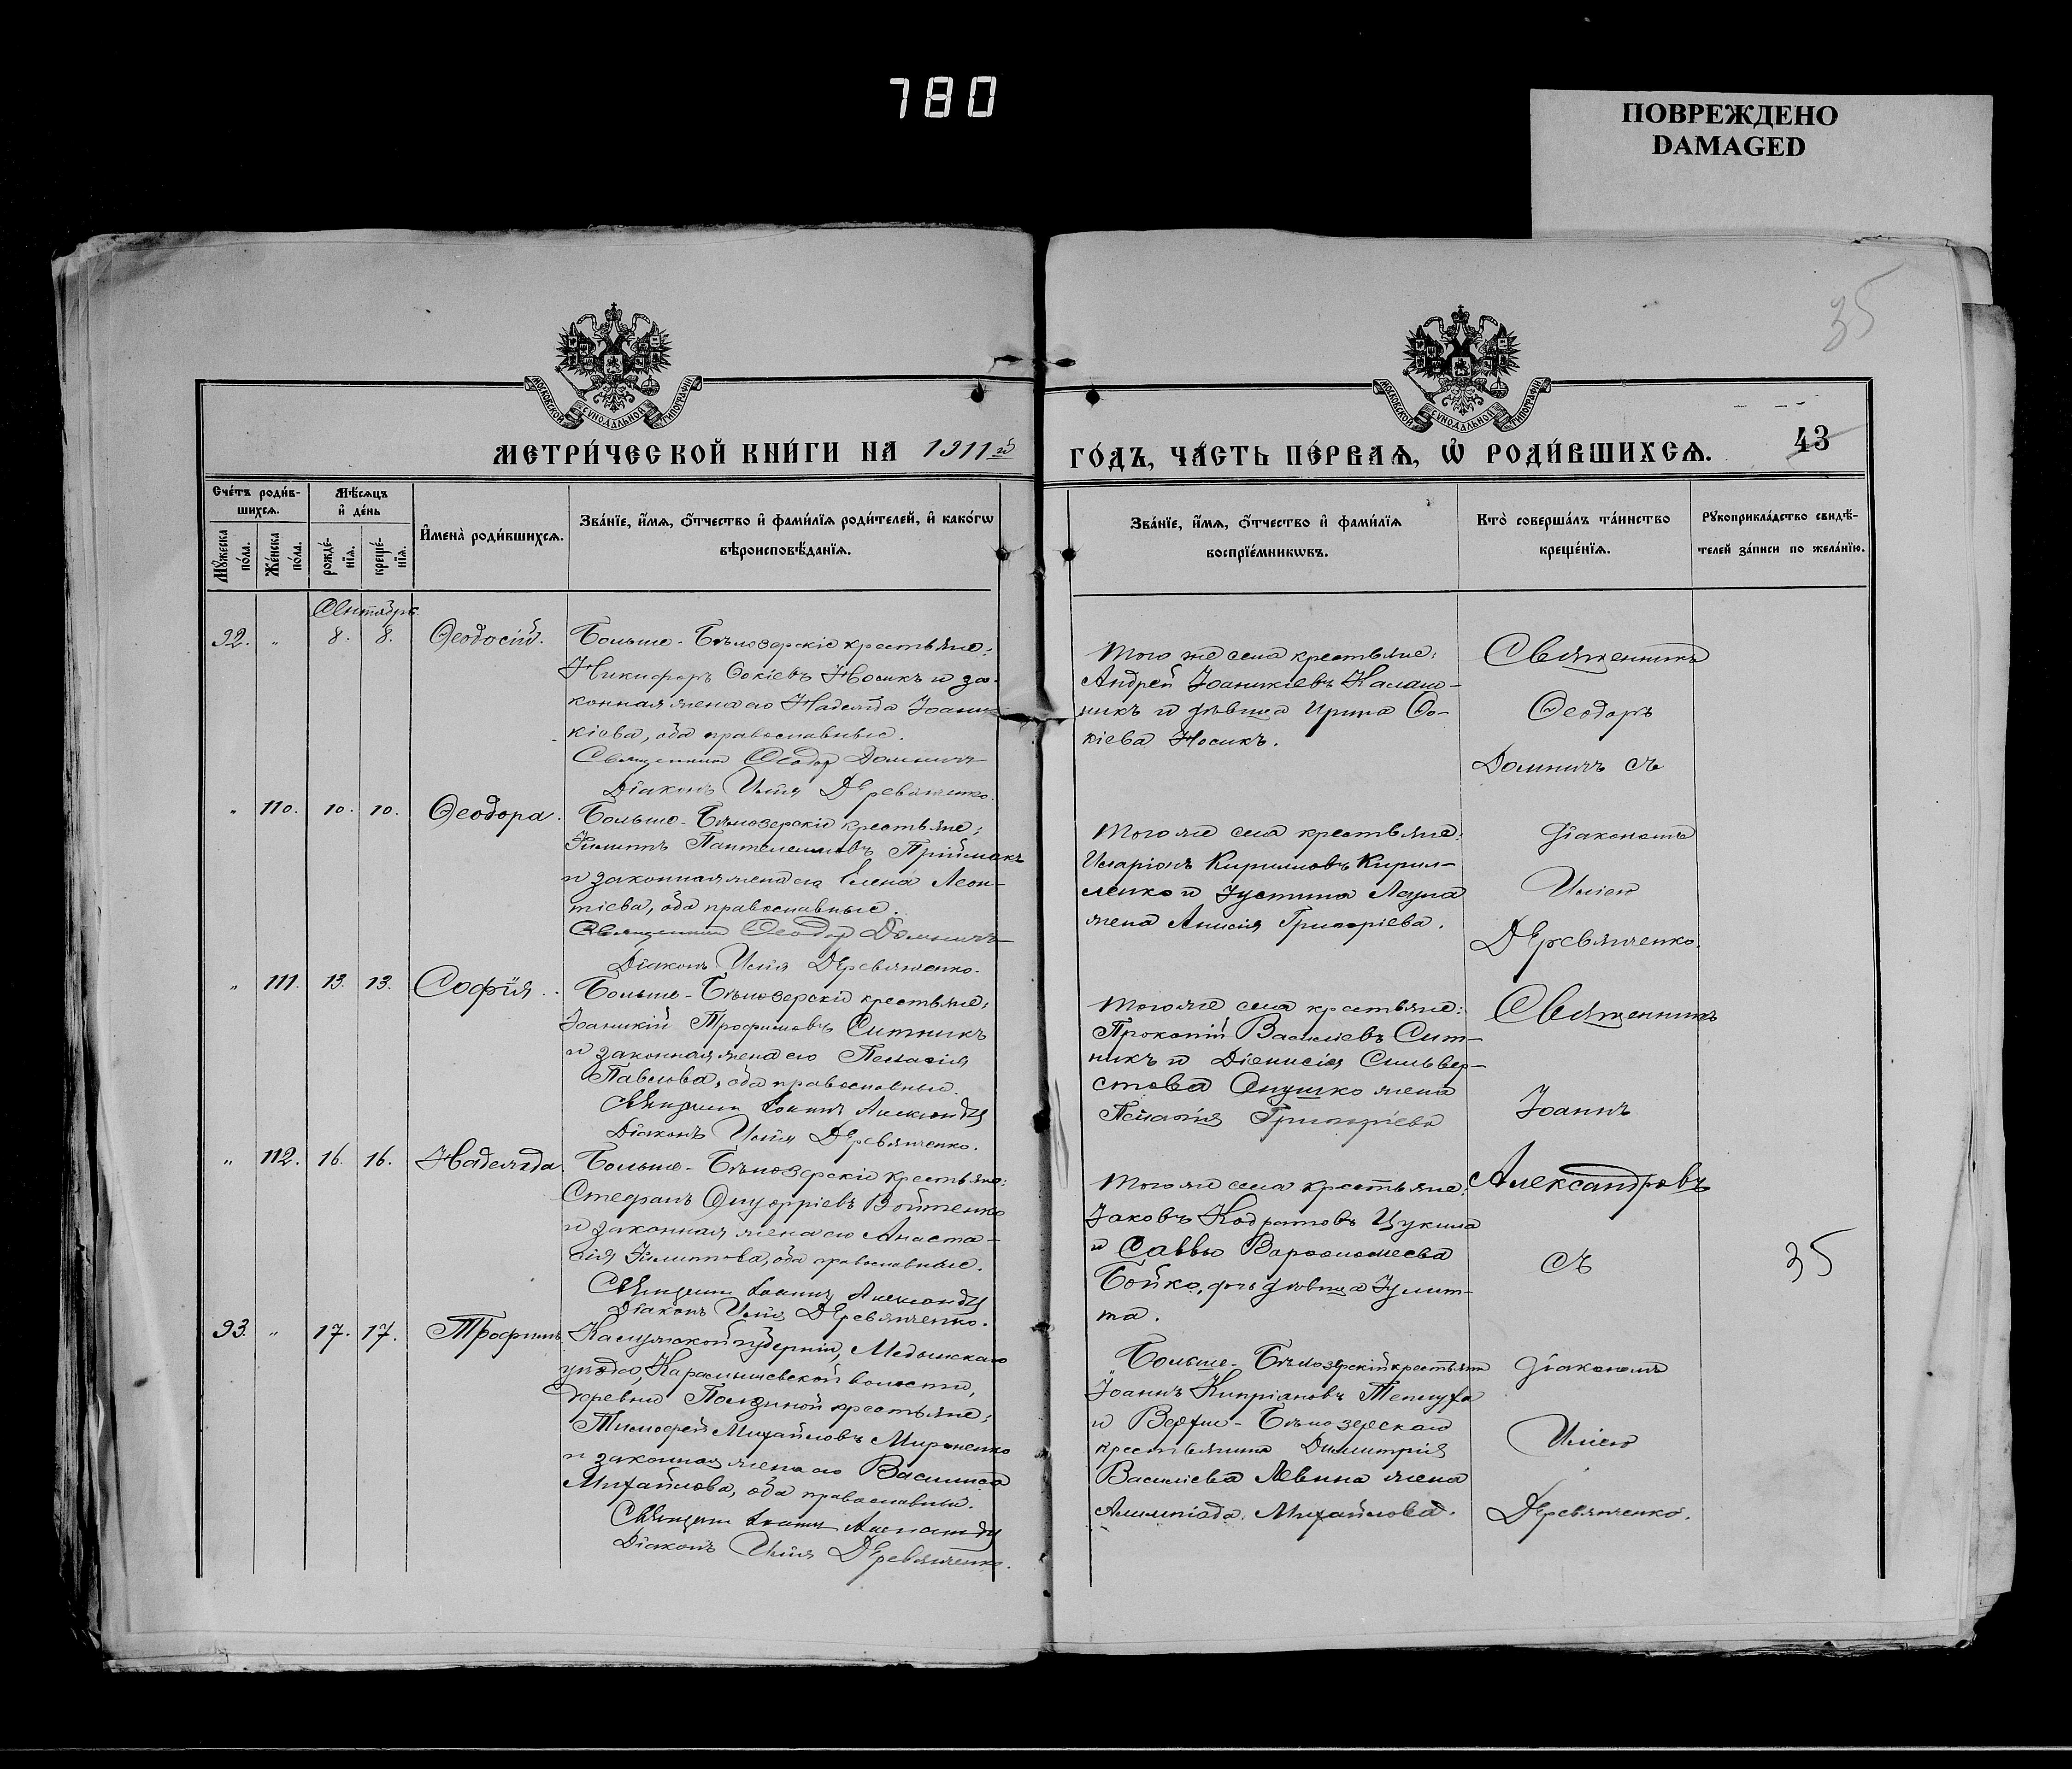 780
ПОВРЕЖДЕНО
DAMAGED
35
МОСКОВСКОЙ СѴНОДАЛЬНОЙ ТИПОГРАФІИ
МОСКОВСКОЙ СѴНОДАЛЬНОЙ ТИПОГРАФІИ
МЕТРИ́ЧЕСКОЙ КНИ́ГИ НА 1911й
ГО́ДЪ, ЧА́СТЬ ПЕ́РВАѦ, Ѡ҆ РОДИ́ВШИХСѦ.
43
Сче́тъ роди́в-
шихсѧ.
Мꙋ́жеска по́ла.
Же́нска по́ла.
Мѣ́сѧцъ
и҆ де́нь
рожде́-нїѧ.
креще́-нїѧ.
И҆мена̀ роди́вшихсѧ.
Зва́нїе, и҆́мѧ, ѻ҆́тчество и҆ фами́лїѧ роди́телей, и҆ како́гѡ
вѣроисповѣ́данїѧ.
Зва́нїе, и҆́мѧ, ѻ҆́тчество и҆ фами́лїѧ
воспрїе́мникѡвъ.
Кто̀ соверша́лъ та́инство
креще́нїѧ.
Рꙋкоприкла́дство свидѣ́-
телей за́писи по жела́нїю.
Сентябрь
92. " 8. 8. Ѳеодосій.
Больше-Бѣлозерскіе крестьяне:
Никифоръ Ѳокіевъ Носикъ и за-
конная жена его Надежда Іоани-
кіева, оба православные.
Священникъ Ѳеодоръ Домничъ
Діаконъ Илія Деревянченко.
Того же села крестьяне:
Андрей Іоаникіевъ Калаш-
никъ и дѣвица Ирина Ѳо-
кіева Носикъ.
Священникъ
Ѳеодоръ
Домничъ съ
" 110. 10. 10. Ѳеодора.
Больше-Бѣлозерскіе крестьяне:
Филиппъ Пантелеимовъ Пріймакъ
и законная жена его Елена Леон-
тіева, оба православные.
Священникъ Ѳеодоръ Домничъ
Діаконъ Илія Деревянченко.
Того же села крестьяне:
Иларіонъ Кириловъ Кирил-
ленко и Іустина
жена Анисія Григоріева.
Діакономъ
Иліею
Деревянченко.
" 111. 13. 13. Софія.
Больше-Бѣлозерскіе крестьяне:
Іоаникій Трофимовъ Ситникъ
и законная жена его Пелагія
Павлова, оба православные.
Священникъ Іоаннъ Александровъ
Діаконъ Илія Деревянченко.
Того же села крестьяне:
Прокопій Василіевъ Сит-
никъ и Діонисія Сильвер-
стова Онушко жена
Пелагія Григоріева
Священникъ
Іоаннъ
" 112. 16. 16. Надежда.
Больше-Бѣлозерскіе крестьяне:
Стефанъ Онуфріевъ Войтенко
и законная жена его Анаста-
сія Филиппова, оба православные.
Священникъ Іоаннъ Александровъ
Діаконъ Илія Деревянченко.
Того же села крестьяне:
Іаковъ Кодратовъ Цукила
и Саввы Варфоломеева
Бойко, дочь дѣвица Іулит-
та.
Александровъ
съ
35
93. " 17. 17. Трофимъ
Калужской губерніи, Медынскаго
уѣзда, Карамышевской волости,
деревни крестьяне:
Тимофей Михайловъ Мироненко
и законная жена его Василиса
Михайлова, оба православные.
Священникъ Іоаннъ Александровъ
Діаконъ Илія Деревянченко.
Больше-Бѣлозерскій крестьянинъ
Іоаннъ Кипріановъ Теплуха
и Верхне-Бѣлозерскаго
крестьянина Димитрія
Василіева Левина жена
Алимпіада Михайлова.
Діакономъ
Иліею
Деревянченко.